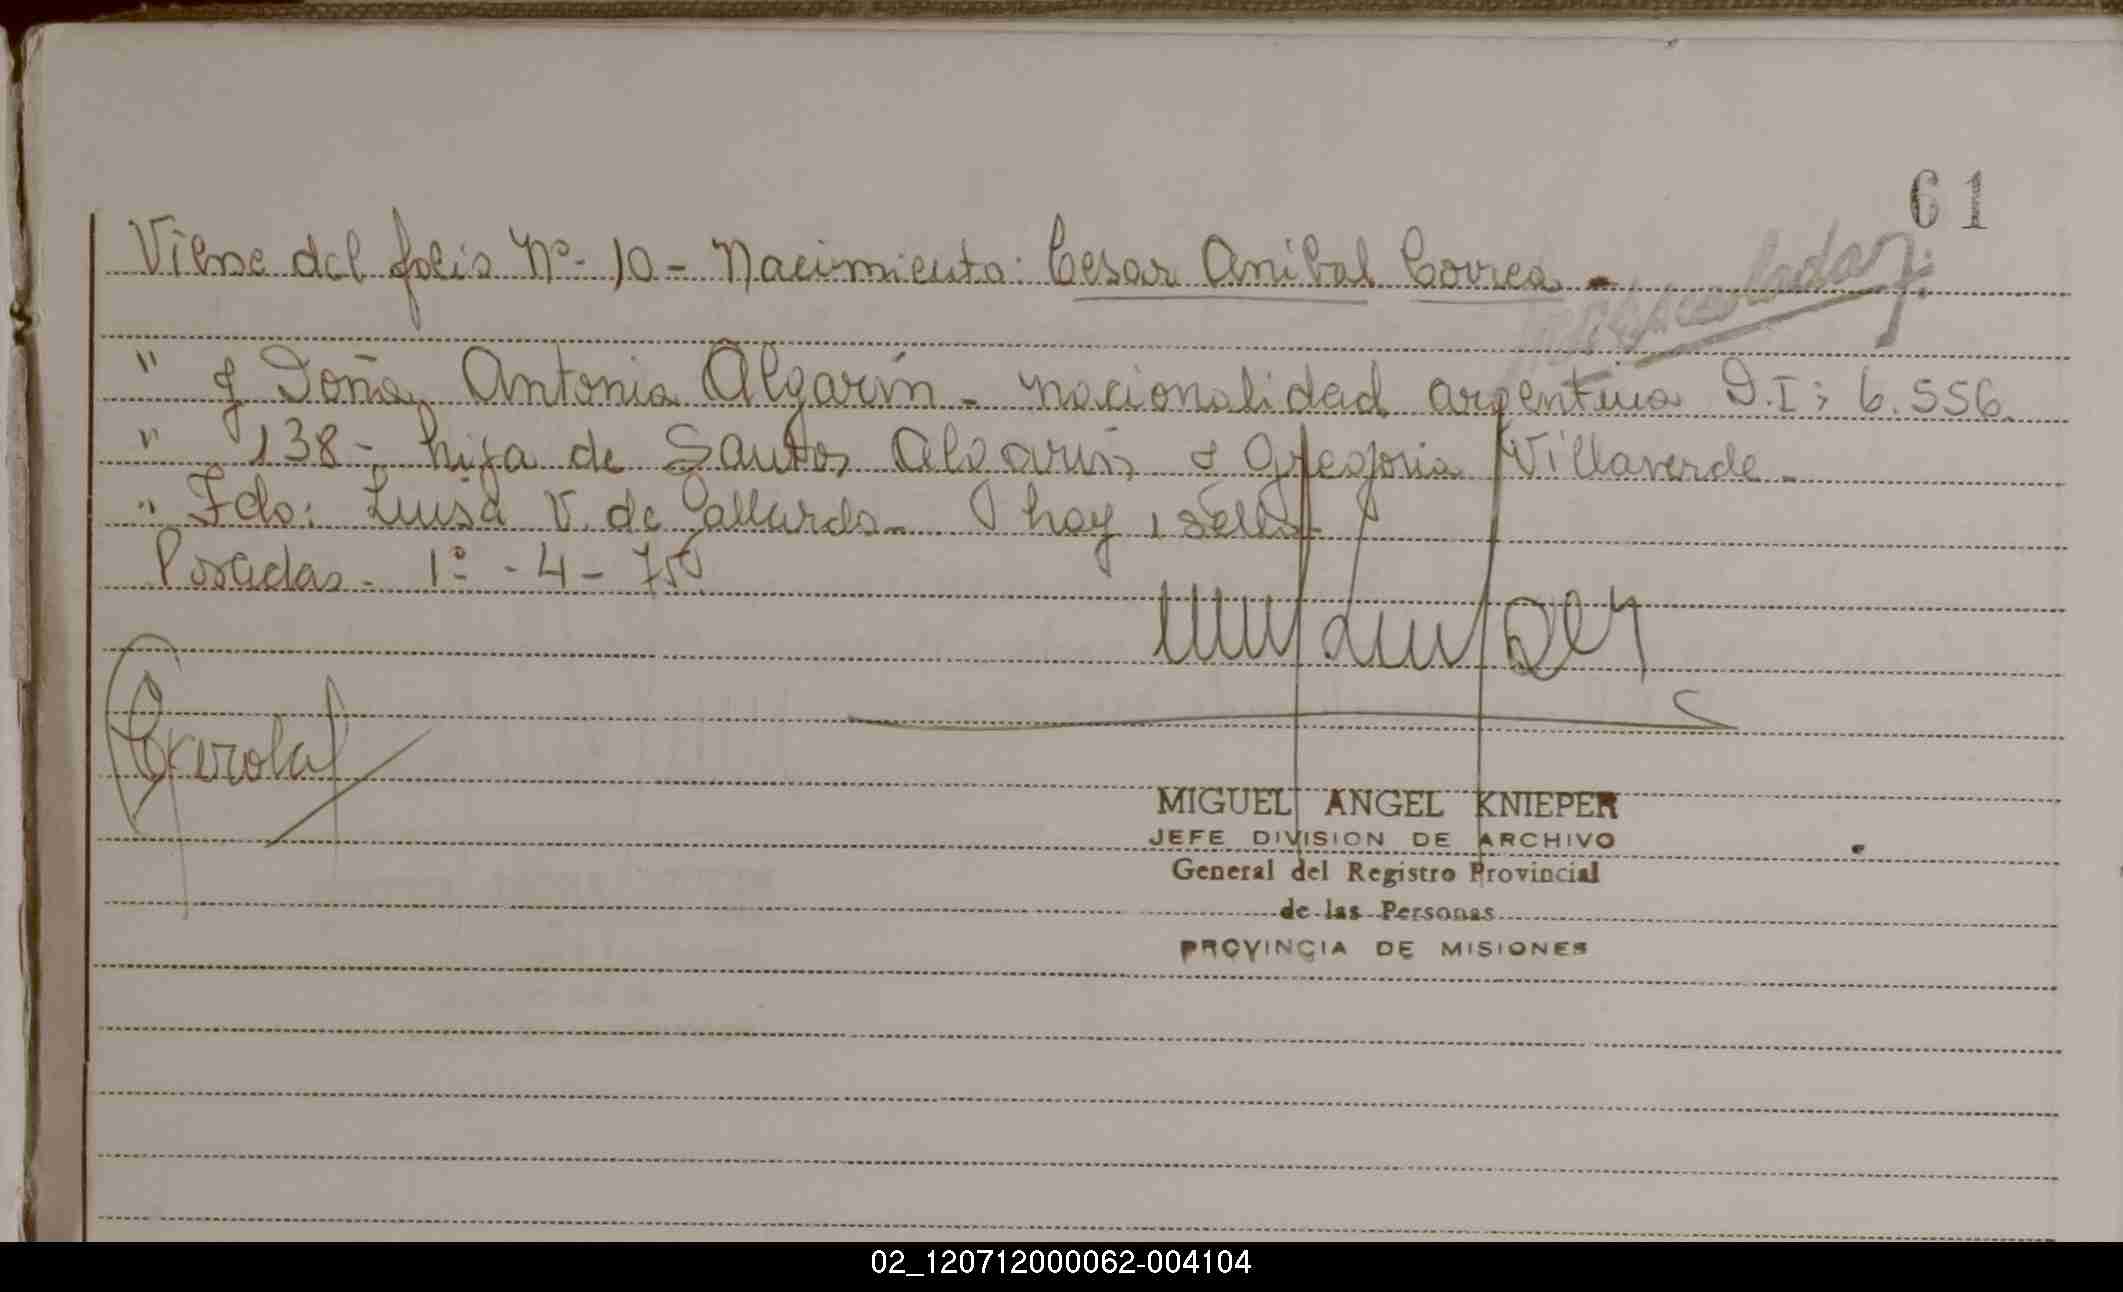 61
Viene del folio Nº- 10 - Nacimiento: Cesar Anibal Correa -
" y Doña Antonia Algarín - nacionalidad argentina D.I; 6.556.
" 138 - hija de Santos Algarín, y Gregoria Villaverde -
" Fdo: Luisa V. de Gallardo - hay 1 sello
Posadas - 1º - 4 - 75
MIGUEL ANGEL KNIEPER
JEFE DIVISION DE ARCHIVO
General del Registro Provincial
de las Personas
PROVINCIA DE MISIONES
02_120712000062-004104